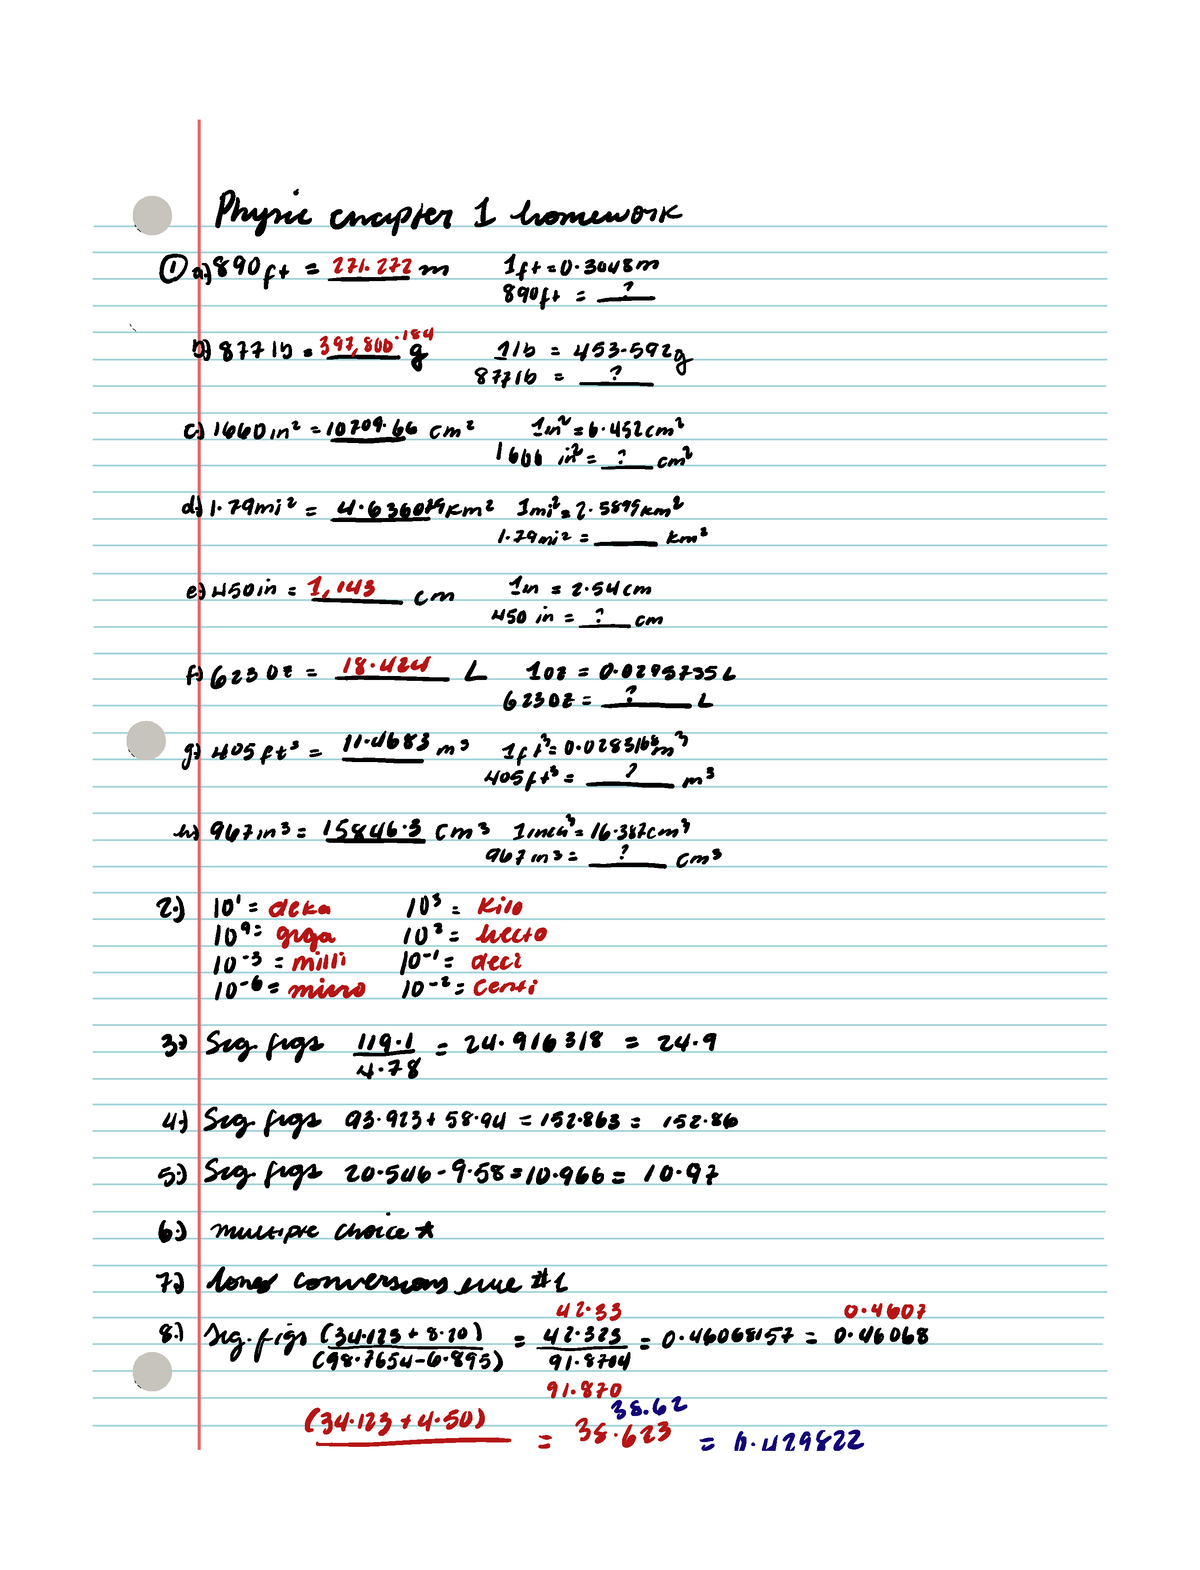 Physic chapter 1 homework
① a.) 890ft = 271.272 m 1ft = 0.3048m
890ft = ?
b) 877 lb = 397,800.184 g 1lb = 453.592g
877lb = ?
c) 1660in² = 10709.66 cm² 1in² = 6.452cm²
1666 in² = ? cm²
d) 1.79mi² = 4.636079 km² 1mi² = 2.5899km²
1.79mi² = km²
e) 450in = 1,143 cm 1in = 2.54cm
450 in = ? cm
f) 623 oz = 18.424 L 1oz = 0.0295735L
623oz = ? L
g) 405ft³ = 11.4683 m³ 1ft³ = 0.0283168m³
405ft³ = ? m³
h) 967in³ = 15846.3 cm³ 1inch³ = 16.387cm³
967in³ = ? cm³
2.) 10¹ = deka 10³ = Kilo
10⁹ = giga 10² = hecto
10⁻³ = milli 10⁻¹ = deci
10⁻⁶ = micro 10⁻² = centi
3.) Sig figs 119.1/4.78 = 24.916318 = 24.9
4.) Sig figs 93.923 + 58.94 = 152.863 = 152.86
5.) Sig figs 20.546 - 9.58 = 10.966 = 10.97
6.) multiple choice *
7.) conversions #1
42.33 0.4607
8.) Sig. figs (34.123 + 8.20)/(98.7654-6.895) = 42.323/91.8704 = 0.46068157 = 0.46068
91.870
38.62
(34.123 + 4.50) = 38.623 = 0.429822